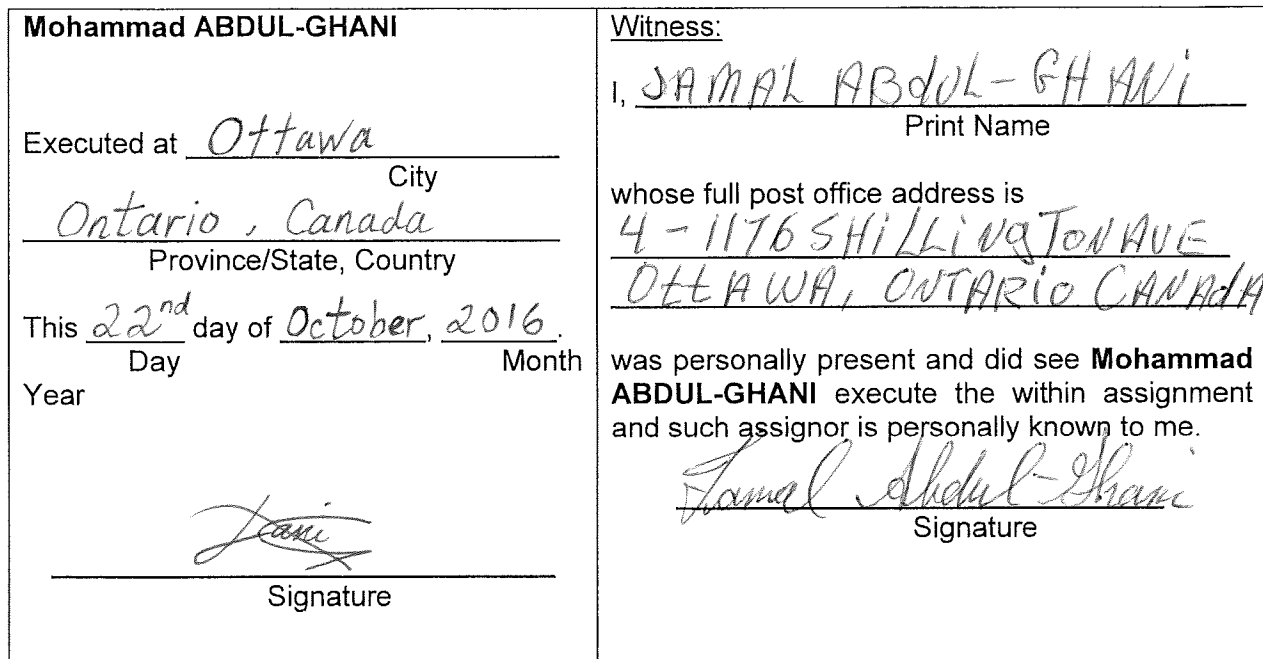 Mohammad ABDUL-GHANI
Executed at Ottawa
City
Ontario, Canada
Province/State, Country
This 22nd day of October, 2016.
Day Month
Year
Signature
Witness:
I, JAMAL ABdUL-GHANi
Print Name
whose full post office address is
4-1176 SHiLLiNgTON AVE
OttAWA, ONTARiO CANAdA
was personally present and did see Mohammad
ABDUL-GHANI execute the within assignment
and such assignor is personally known to me.
Jamal Abdul-Ghani
Signature